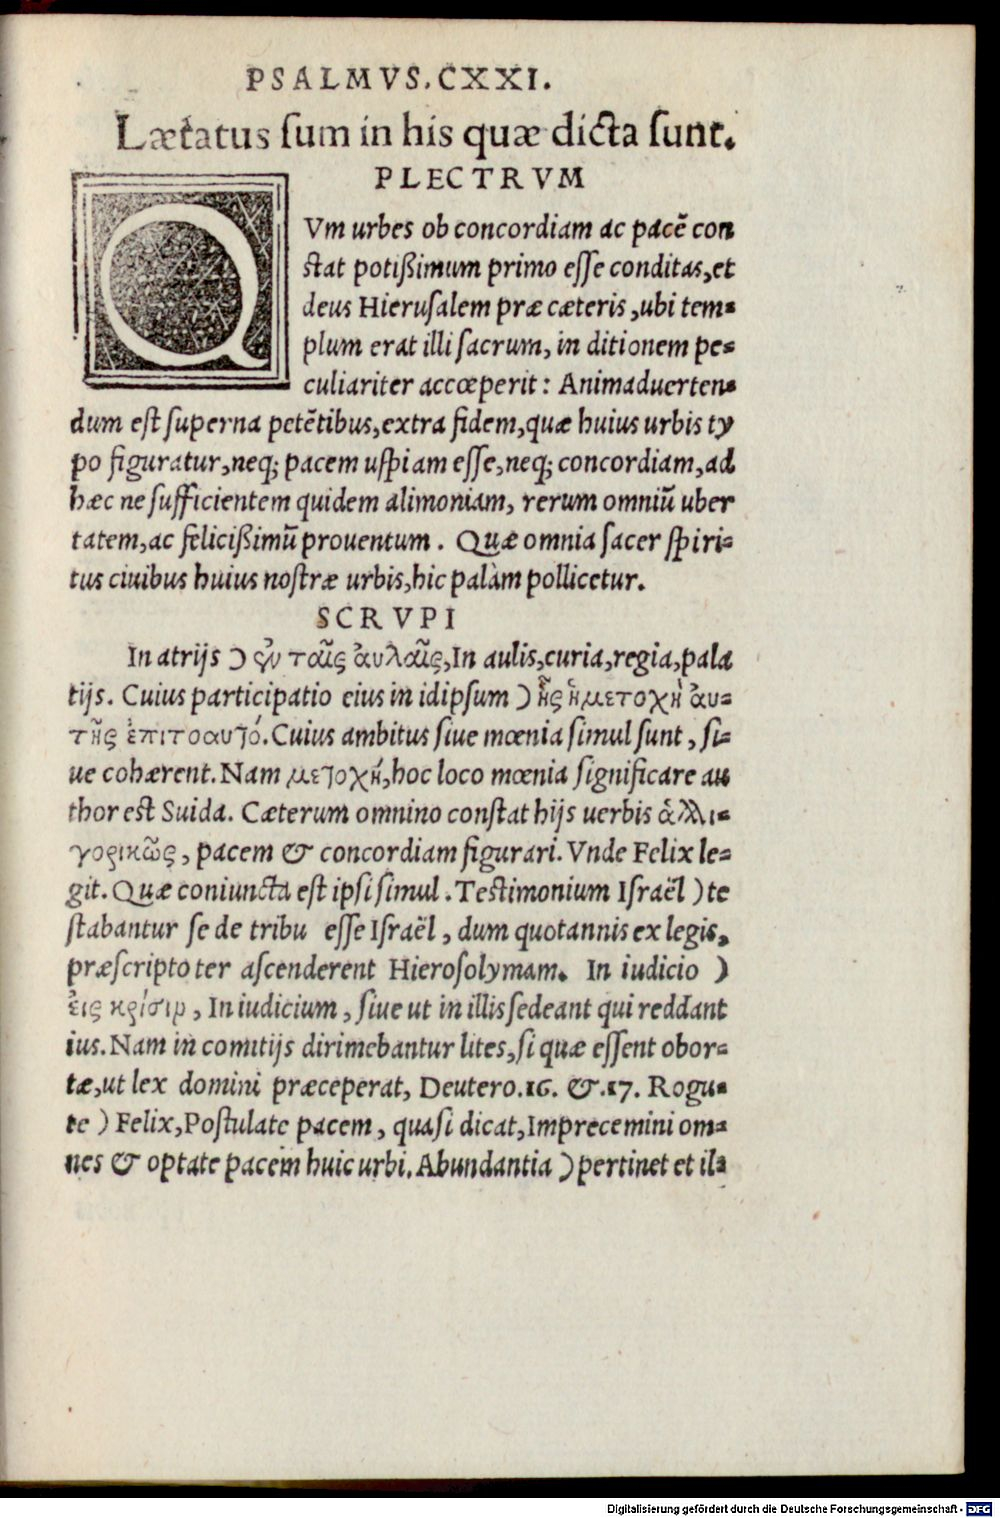 PSALMVS.CXXI.
Lætatus ſum in his quæ dicta ſunt.
PLECTRVM
QVm urbes ob concordiam ac pacē con
ſtat potiſsimum primo eſſe conditas,et
deus Hieruſalem præ cæteris,ubi tem-
plum erat illi ſacrum, in ditionem pe-
culiariter accœperit: Animaduerten-
dum eſt ſuperna petētibus,extra fidem,quæ huius urbis ty
po figuratur,neq; pacem uſpiam eſſe,neq; concordiam,ad
hæc ne ſufficientem quidem alimoniam, rerum omniū uber
tatem,ac feliciſsimū prouentum. Quæ omnia ſacer ſpiri-
tus ciuibus huius noſtræ urbis,hic palàm pollicetur.
SCRVPI
In atrijs ) ἐν ταῖς ἀυλαῖς,In aulis,curia,regia,pala
tijs. Cuius participatio eius in idipſum ) ἧς ἡ μετοχὴ ἀυ-
τῆς ἐπιτοαυτό.Cuius ambitus ſiue mœnia ſimul ſunt, ſi-
ue cohærent.Nam μετοχή,hoc loco mœnia ſignificare au
thor eſt Suida. Cæterum omnino conſtat hijs uerbis ἀλλι-
γορικῶς, pacem & concordiam figurari. Vnde Felix le-
git. Quæ coniuncta eſt ipſi ſimul. Teſtimonium Iſraël ) te
ſtabantur ſe de tribu eſſe Iſraël, dum quotannis ex legis,
præſcripto ter aſcenderent Hieroſolymam. In iudicio )
εἰς κρίσιν, In iudicium, ſiue ut in illis ſedeant qui reddant
ius.Nam in comitijs dirimebantur lites,ſi quæ eſſent obor-
tæ,ut lex domini præceperat, Deutero.16. &.17. Roga-
te ) Felix,Poſtulate pacem, quaſi dicat,Imprecemini om-
nes & optate pacem huic urbi.Abundantia ) pertinet et il-
Digitalisierung gefördert durch die Deutsche Forschungsgemeinschaft - DFG